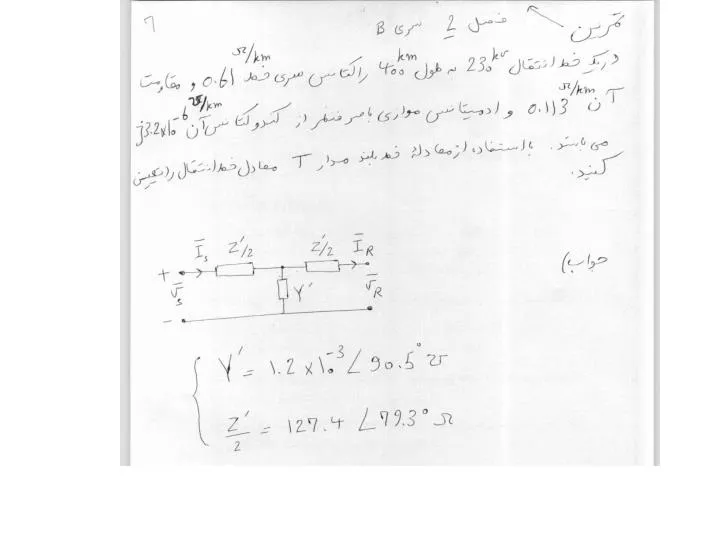 7
تمرین فصل 2 سری B
در یک خط انتقال 230 kv به طول 400 km راکتانس سری خط 0.61 Ω/km و مقاومت
آن 0.113 Ω/km و ادمیتانس موازی با صرفنظر از کندوکتانس آن j3.2x10⁻⁶ ℧/km
می باشد. با استفاده از معادلهٔ خط بلند مدار T معادل خط انتقال را تعیین
کنید.
جواب)
+ Īs Z'/2 Z'/2 ĪR
V̄s Y' V̄R
-
Y' = 1.2 x 10⁻³ ∠90.5° ℧
Z'/2 = 127.4 ∠79.3° Ω